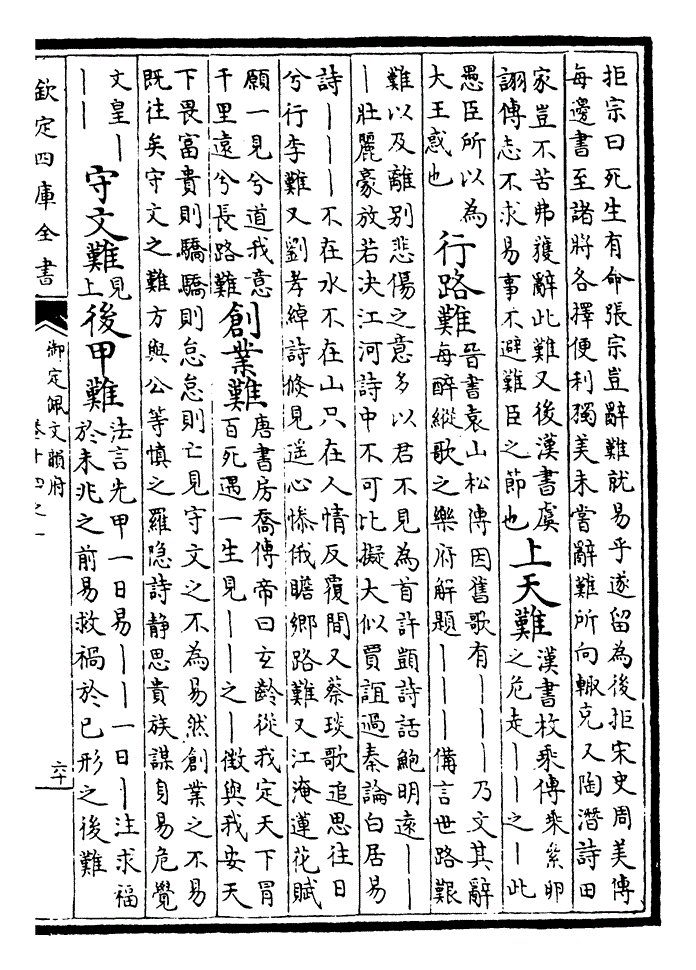 拒宗曰死生有命張宗豈辭難就易乎遂留為後拒宋史周美傳
每邊書至諸將各擇便利獨美未嘗辭難所向輙克又陶潛詩田
家豈不苦弗獲辭此難又後漢書虞
詡傳志不求易事不避難臣之節也
上天難
漢書枚乘傳乘絫卵
之危走丨丨之丨此
愚臣所以為
大王惑也
行路難
晉書袁山松傳因舊歌有丨丨丨乃文其辭
每醉縱歌之樂府解題丨丨丨備言世路艱
難以及離別悲傷之意多以君不見為首許顗詩話鮑明遠丨丨
丨壯麗豪放若决江河詩中不可比擬大似賈誼過秦論白居易
詩丨丨丨不在水不在山只在人情反覆間又蔡琰歌追思往日
兮行李難又劉孝綽詩倏見遥心慘俄瞻鄉路難又江淹蓮花賦
願一見兮道我意
千里遠兮長路難
創業難
唐書房喬傳帝曰玄齡從我定天下冒
百死遇一生見丨丨之丨徴與我安天
下畏富貴則驕驕則怠怠則亡見守文之不為易然創業之不易
既往矣守文之難方與公等慎之羅隐詩静思貴族謀身易危覺
文皇丨
丨丨
守文難
見
上
後甲難
法言先甲一日易丨丨一日丨注求福
於未兆之前易救禍於已形之後難
欽定四庫全書
御定佩文韻府
卷十四之一
六十